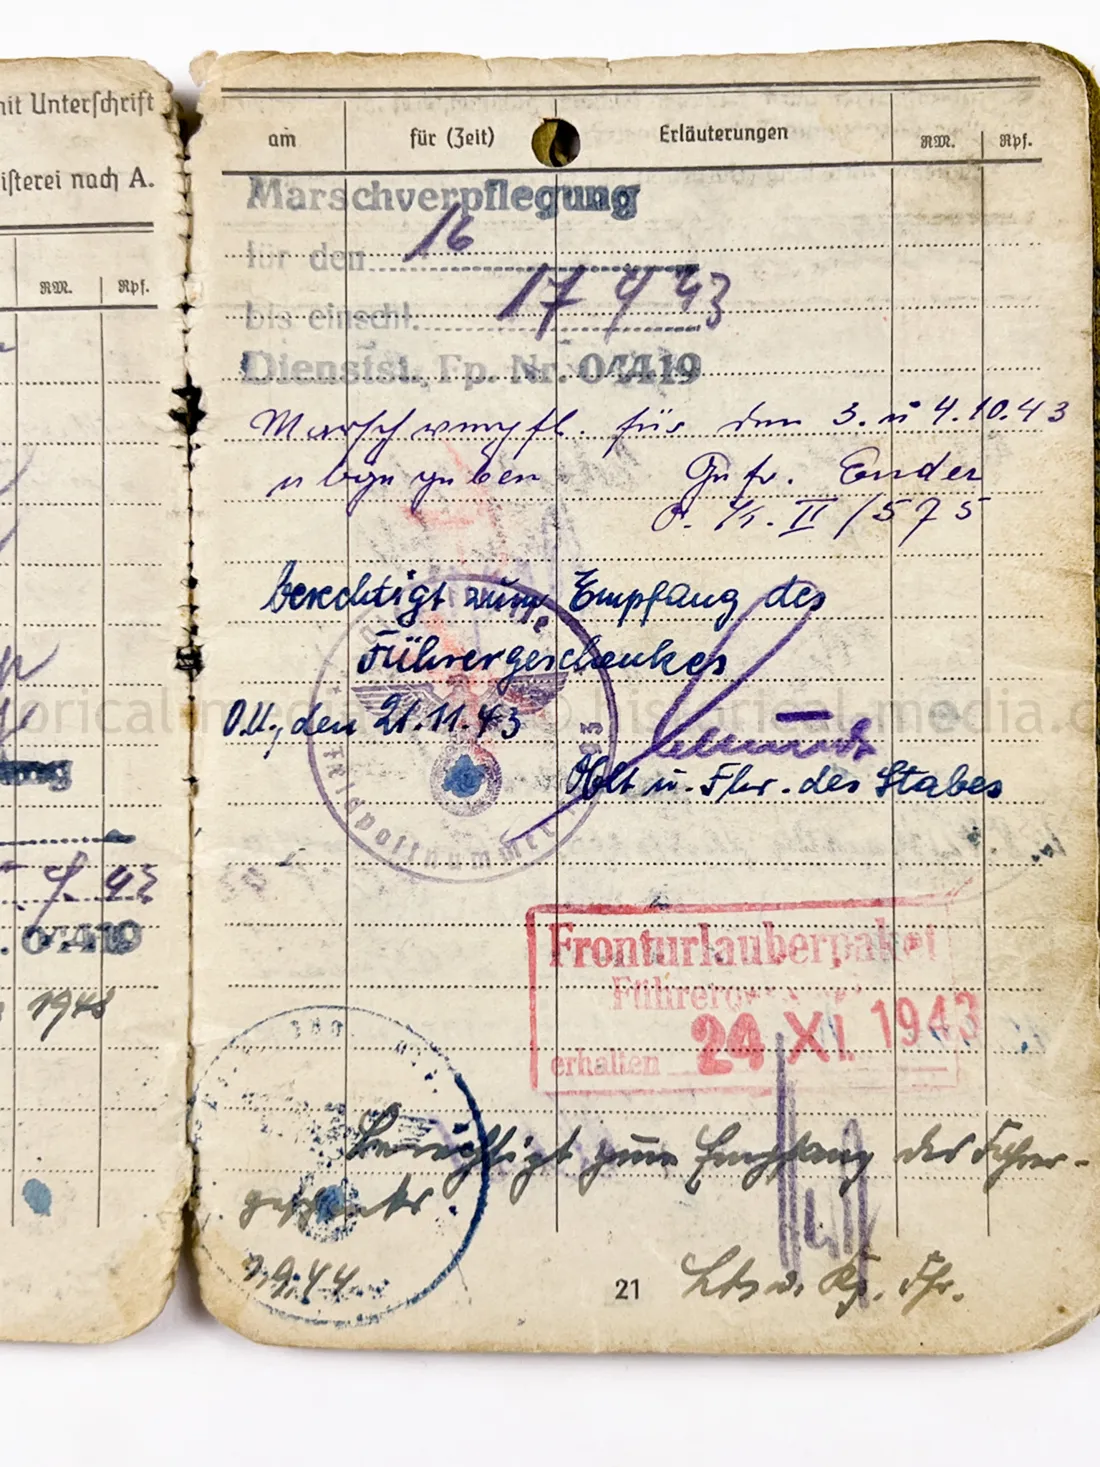 mit Unterschrift
isterei nach A.
RM. Rpf.
am für (Zeit) Erläuterungen RM. Rpf.
Marschverpflegung
für den 16
bis einschl. 17 4 43
Dienstst. Fp. Nr. 04419
Marschverpfl. für den 3. u 4.10.43
abgegeben Gefr. Ender
II/575
berechtigt zum Empfang des
Führergeschenkes
O.U., den 21.11.43
Oblt u. Fhr. des Stabes
Feldpostnummer
4 43
. 04419
Fronturlauberpaket
erhalten 24 XI. 1943
Berechtigt zum Empfang des Führer-
geschenks
9.44
21 Lt. u. Kp. Fhr.
© historical-media.c